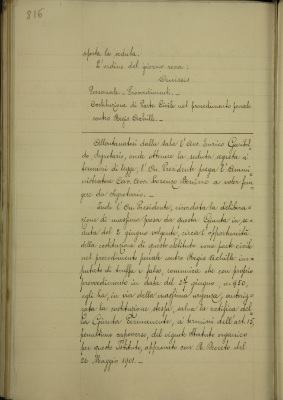 816
aperta la seduta.
L'ordine del giorno reca:
Omissis
Personale - Provvedimenti -
Costituzione di Parte Civile nel procedimento penale
contro Regis Achille. -
Allontanatosi dalla sala l'Avv. Enrico
Segretario, onde ottenere la seduta segreta a'
termini di legge, l'On. Presidente prega l'Ammi-
nistratore Cav. Avv. Lorenzo a voler fun-
gere da Segretario. -
Indi l'On. Presidente, ricordata la delibera-
zione di massima presa da questa Giunta in se-
duta del 2 giugno volgente, circa l'opportunità
della costituzione di questo Istituto in parte civile
nel procedimento penale contro Regis Achille im-
putato di truffa e falso, comunica che con proprio
provvedimento in data del 27 giugno, n. 950,
egli ha, in via della massima urgenza, autoriz-
zata la costituzione stessa, salva la ratifica del-
la Giunta Permanente, a' termini dell'art. 15,
penultimo capoverso, del vigente Statuto organico
per questo Istituto, approvato con R. Decreto del
26 Maggio 1901. -